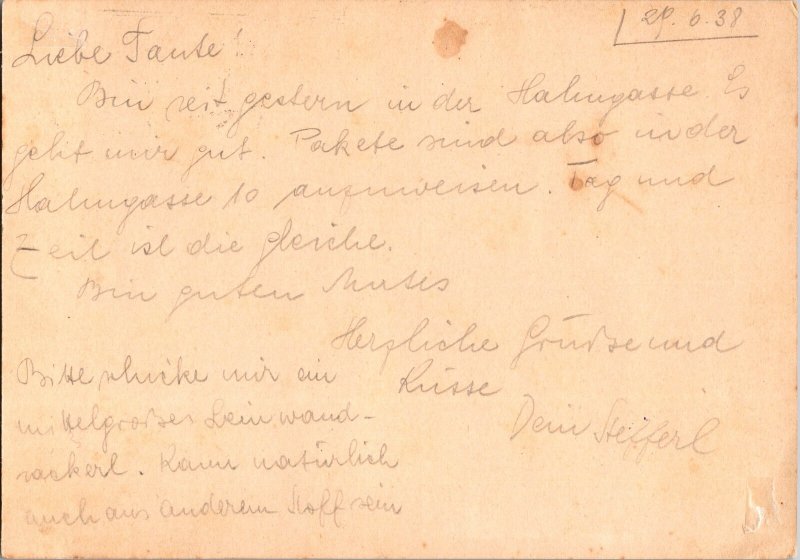 29. 6. 38
Liebe Tante!
Bin seit gestern in der Hahngasse. Es
geht mir gut. Pakete sind also in der
Hahngasse 10 anzuweisen. Tag und
Zeit ist die gleiche.
Bin guten Mutes
Herzliche Grüsse und
Küsse
Dein Stefferl
Bitte schicke mir ein
mittelgroßes Leinwand-
sackerl. Kann natürlich
auch aus anderem Stoff sein